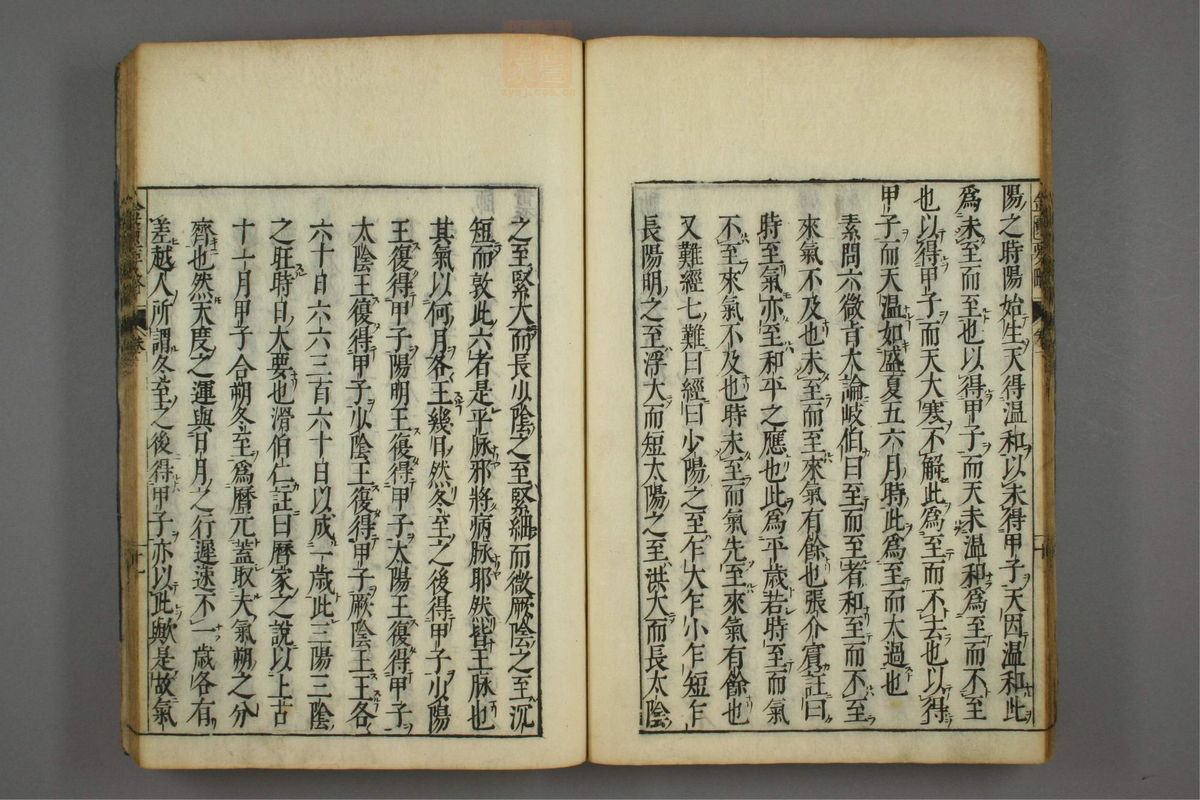 陽之時陽始生天得温和以未得甲子天因温和此
爲未至而至也以得甲子而天未温和爲至而不至
也以得甲子而天大寒不解此爲至而不去也以得
甲子而天温如盛夏五六月時此爲至而太過也
素問六微旨大論岐伯曰至而至者和至而不至
來氣不及也未至而至來氣有餘也張介賓註曰
時至氣亦至和平之應也此爲平歲若時至而氣
不至來氣不及也時未至而氣先至來氣有餘也
又難經七難曰經曰少陽之至乍大乍小乍短乍
長陽明之至浮大而短太陽之至洪大而長太陰
之至緊大而長少陰之至緊細而微厥陰之至沉
短而敦此六者是平脉邪將病脉耶然皆王脉也
其氣以何月各王幾日然冬至之後得甲子少陽
王復得甲子陽明王復得甲子太陽王復得甲子
太陰王復得甲子少陰王復得甲子厥陰王王各
六十日六六三百六十日以成一歲此三陽三陰
之旺時日大要也滑伯仁註曰曆家之說以上古
十一月甲子合朔冬至爲曆元蓋取夫氣朔之分
齊也然天度之運與日月之行遲速不一歲各有
差越人所謂冬至之後得甲子亦以此歟是故氣
金匱要略